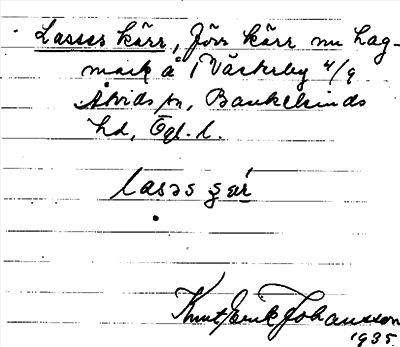 Lasses kärr, förr kärr nu hag-
mark å 1 Västerby 4/9
Åtvids sn, Bankekinds
hd, Ögl. l.
lasəs
Knut Erik Johansson
1935.